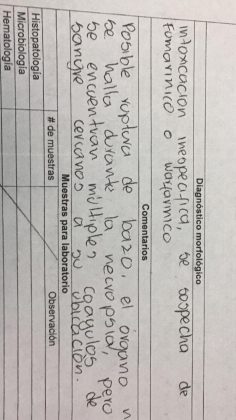 Diagnóstico morfológico
Intoxicación inespecífica, se sospecha de
Fumarínico o warfarínico
Comentarios
Posible ruptura de bazo, el órgano n
se halla durante la necropsia, pero
se encuentran múltiples coágulos de
sangre cercanos a su ubicación.
Muestras para laboratorio
# de muestras Observación
Histopatología
Microbiología
Hematología